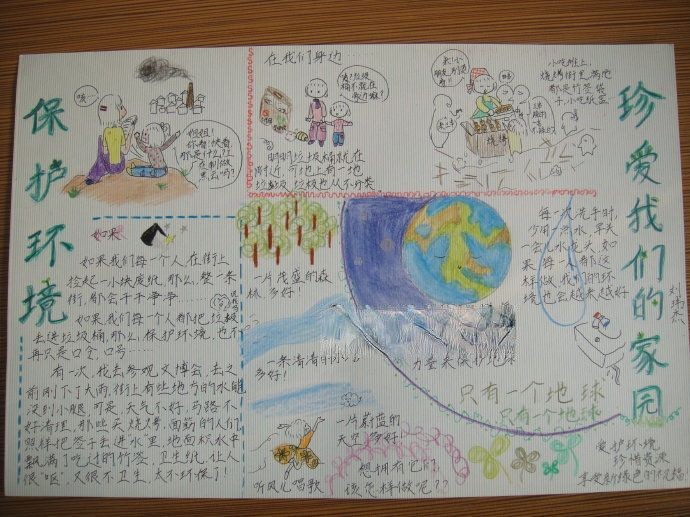 保护环境
珍爱我们的家园
刘瑞杰
唉…
姐姐!
你看!快看
那是什么?
在制做
黑云吗?
在我们身边……
明明垃圾桶就在
附近,可地上有一地
垃圾,垃圾也从不分类
小吃摊上,
烧烤街里,满地
都是竹签袋
子,小吃纸盒
烧烤
如果
如果我们每一个人在街上
捡起一小块废纸,那么,整一条
街,都会干干净净……
如果,我们每一个人都把垃圾
丢进垃圾桶,那么,保护环境,也不
再只是口号,口号……
有一次,我去参观文博会,去之
前刚下了大雨,街上有些地方的水能
没到小腿,可是,天气不好,马路不
好看理,那些天烧烤,面筋的人们
照样把签子丢进水里,地面积水中
飘满了吃过的竹签,卫生纸,让人
很呕,又很不卫生,太不环保了!
一片茂盛的森
林,多好!
一条清清的小
多好!
一片蔚蓝的
天空,多好!
想拥有它们,
该怎样做呢??
听风儿唱歌
每一次洗手时,
少用一点水,早关
一会儿水龙头,如
果每人都这
样做,我们的环
境也会越来越好
只有一个地球
只有一个地球
爱护环境,
珍惜资源
享受新绿色的祝福